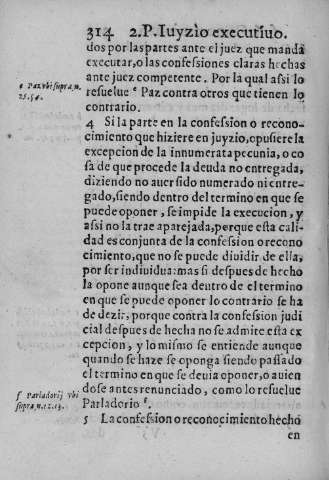 314 2.P. Iuyzio executiuo.
dos por las partes ante el juez que manda
executar, o las confessiones claras hechas
ante juez competente. Por la qual assi lo
e Paz vbi supra, n.
25. §4.
resuelue e Paz contra otros que tienen lo
contrario.
4 Si la parte en la confession o recono-
cimiento que hiziere en juyzio, opusiere la
excepcion de la innumerata pecunia, o co
sa de que procede la deuda no entregada,
diziendo no auersido numerado ni entre-
gado, siendo dentro del termino en que se
puede oponer, se impide la execucion, y
assi no la trae aparejada, perque esta cali-
dad es conjunta de la confession o recono
cimiento, que no se puede diuidir de ella,
por ser indiuidua: mas si despues de hecho
la opone aunque sea dentro de el termino
en que se puede oponer lo contrario se ha
de dezir, porque contra la confession judi
cial despues de hecha no se admite esta ex
cepcion, y lo mismo se entiende aunque
quando se haze se oponga siendo passado
el termino en que se deuia oponer, o auien
f Parladorij vbi
supra, n. 12. 13.
dose antes renunciado, como lo resuelue
Parladorio f.
5 La confession o reconocimiento hecho
en